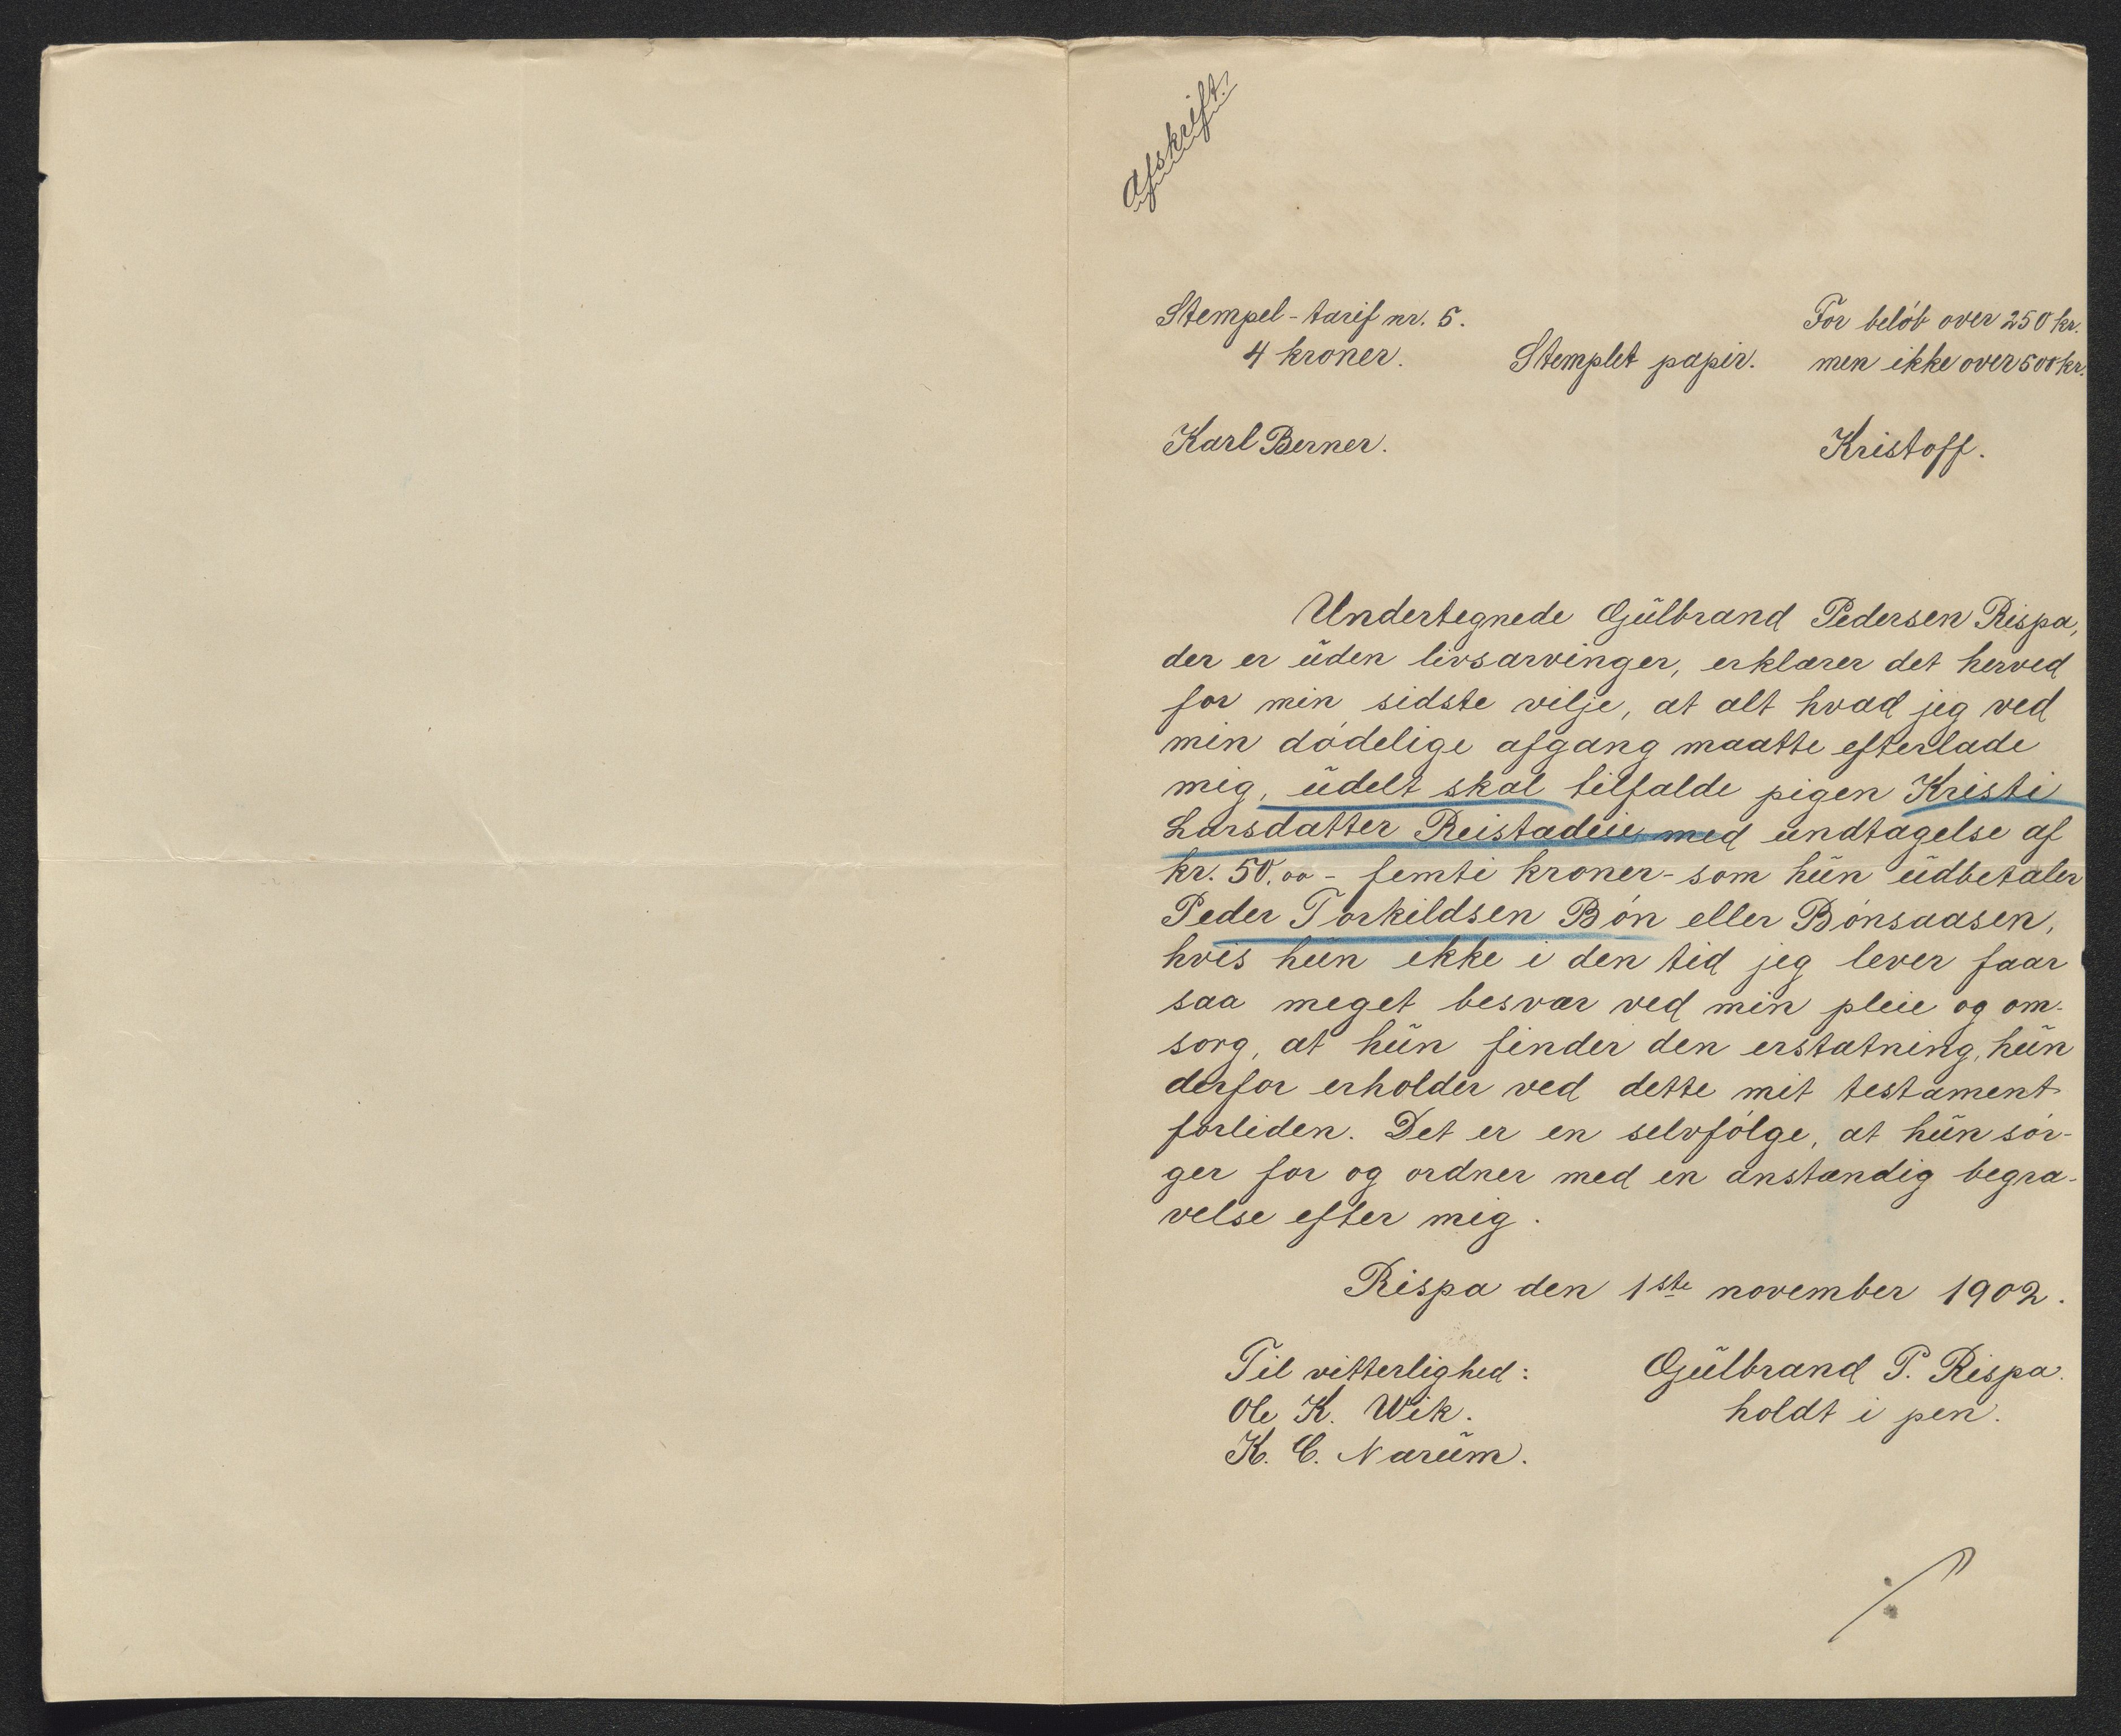 Afskrift.
Stempel-tarif nr. 5.
4 kroner.
Stemplet papir.
For beløb over 250 kr.
men ikke over 500 kr.
Karl Berner.
Kristoff.
Undertegnede Gŭlbrand Pedersen Rispa,
der er ŭden livsarvinger, erklærer det herved
for min sidste vilje, at alt hvad jeg ved
min dødelige afgang maatte efterlade
mig, ŭdelt skal tilfalde pigen Kristi
Larsdatter Reistadeie med ŭndtagelse af
kr. 50.00 - femti kroner - som hŭn ŭdbetaler
Peder Torkildsen Bøn eller Bønsaasen,
hvis hŭn ikke i den tid jeg lever faar
saa meget besvær ved min pleie og om-
sorg, at hŭn finder den erstatning, hŭn
derfor erholder ved dette mit testament
forliden. Det er en selvfølge, at hŭn sør-
ger for og ordner med en anstændig begra-
velse efter mig.
Rispa den 1ste november 1902.
Til vitterlighed:
Ole K. Wik.
K. C. Narŭm.
Gŭlbrand P. Rispa.
holdt i pen.